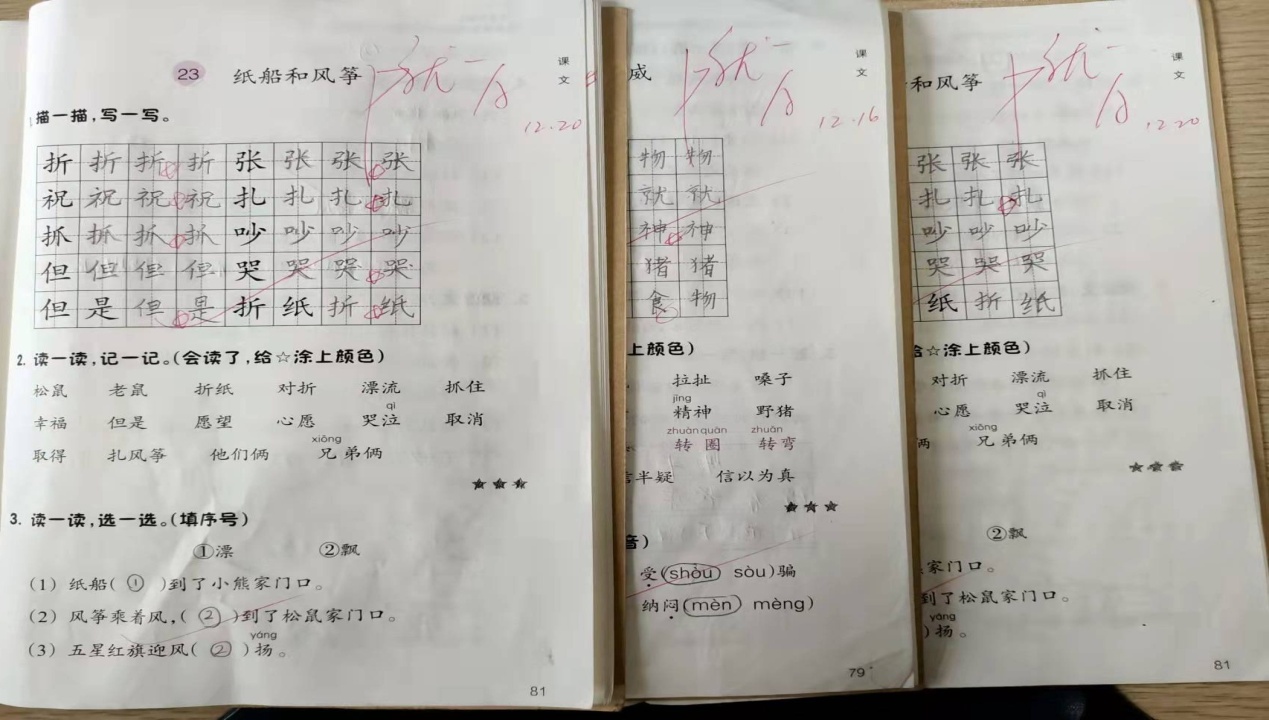 23 纸船和风筝
课文
12.20
描一描，写一写。
折 折 折 折 张 张 张 张
祝 祝 祝 祝 扎 扎 扎 扎
抓 抓 抓 抓 吵 吵 吵 吵
但 但 但 但 哭 哭 哭 哭
但 是 但 是 折 纸 折 纸
2. 读一读，记一记。(会读了，给☆涂上颜色)
松鼠 老鼠 折纸 对折 漂流 抓住
qì
幸福 但是 愿望 心愿 哭泣 取消
xiōng
取得 扎风筝 他们俩 兄弟俩
★★★
3. 读一读，选一选。(填序号)
①漂 ②飘
(1) 纸船( ① )到了小熊家门口。
(2) 风筝乘着风，( ② )到了松鼠家门口。
yáng
(3) 五星红旗迎风( ② )扬。
81
威
课文
12.16
物 物
就 就
神 神
猪 猪
食 物
上颜色)
拉扯 嗓子
jīng
精神 野猪
zhuàn quān zhuǎn
转圈 转弯
信半疑 信以为真
★★★
音)
受(shòu sòu)骗
纳闷(mèn mèng)
79
和风筝
课文
12.20
张 张 张
扎 扎 扎
吵 吵 吵
哭 哭 哭
纸 折 纸
给☆涂上颜色)
对折 漂流 抓住
qì
心愿 哭泣 取消
xiōng
俩 兄弟俩
★★★
②飘
家门口。
到了松鼠家门口。
yáng
)扬。
81